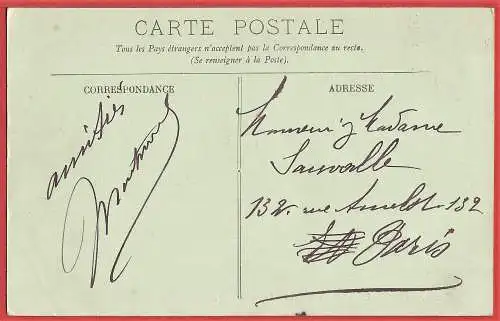 CARTE POSTALE
Tous les Pays étrangers n'acceptent pas la Correspondance au recto.
(Se renseigner à la Poste).
CORRESPONDANCE
amitiés
ADRESSE
Monsieur & Madame
Sauvalle
132. rue Amelot. 132
Paris